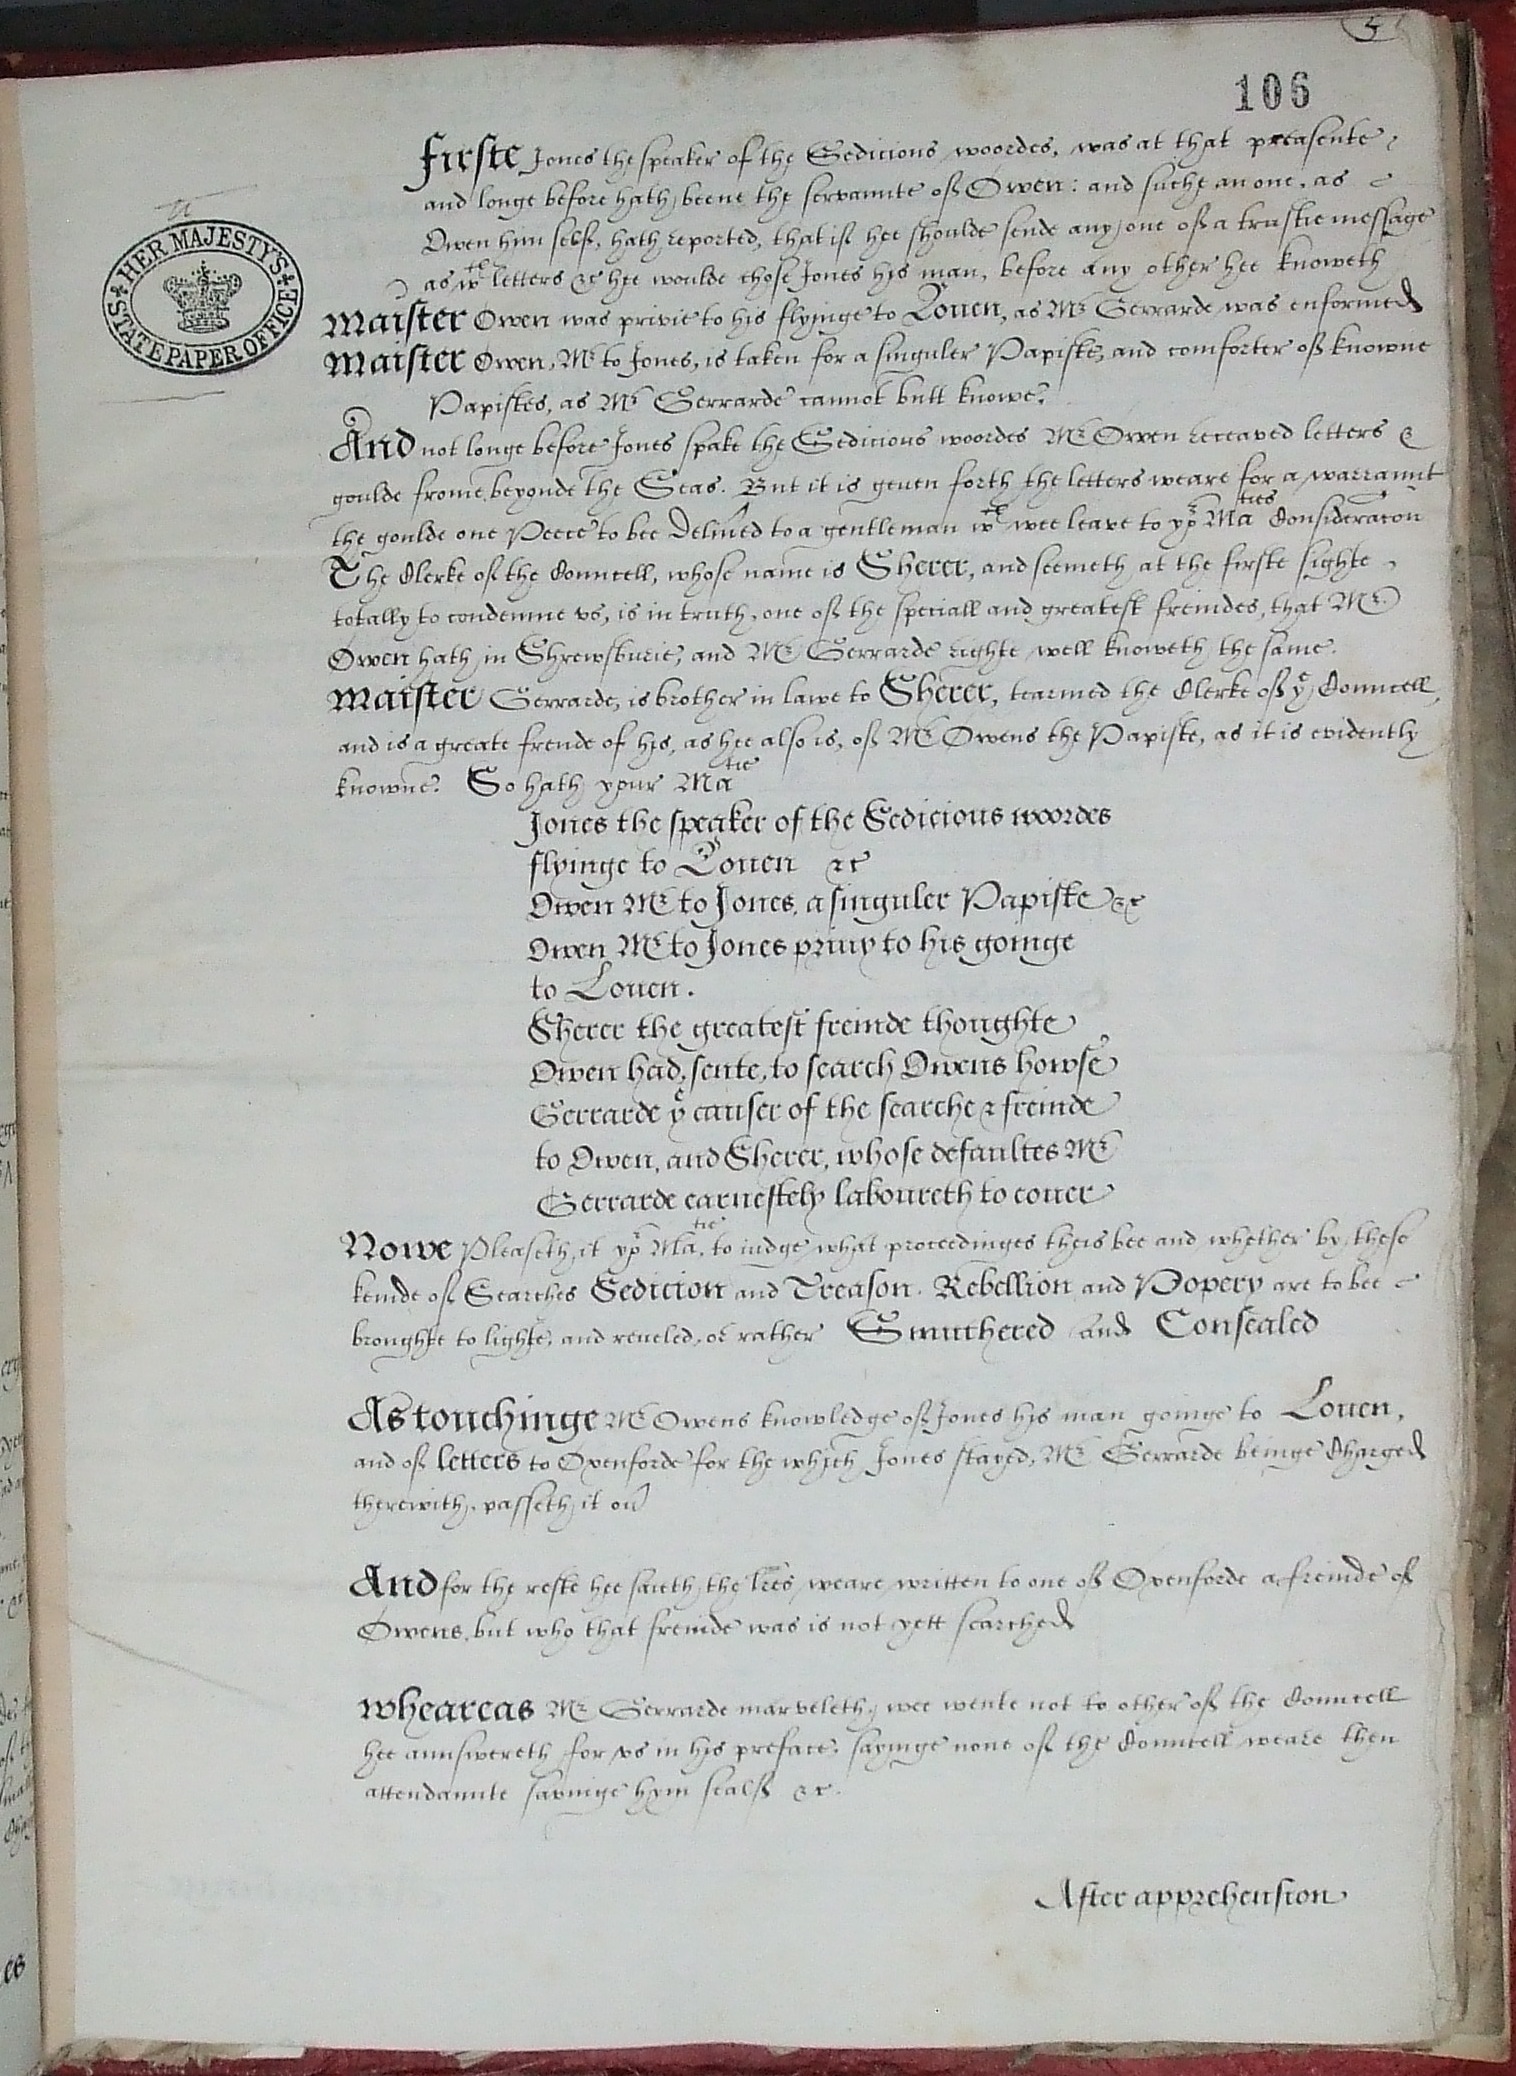 5
106
HER MAJESTY'S
STATE PAPER OFFICE
Firste Jones the speaker of the Sedicious woordes, was at that preasente,
and longe before hath beene the servaunte of Owen: and suche an one, as
Owen him self, hath reported, that if hee shoulde sende any one of a trustie message
as wth letters &c hee woulde chose Jones his man, before any other hee knoweth
Maister Owen was privie to his flyinge to Louen, as Mr Gerrarde was enformed
Maister Owen, Mr to Jones, is taken for a singuler Papiste, and comforter of knowne
Papistes, as Mr Gerrarde cannot butt knowe.
And not longe before Jones spake the Sedicious woordes Mr Owen receaved letters &
goulde frome beyonde the Seas. But it is geuen forth the letters weare for a warraunt
the goulde one Peece to bee deliued to a gentleman wch wee leave to yor Maties Consideracon
The Clerke of the Councell, whose name is Sherer, and seemeth at the firste sighte
totally to condemne vs, is in truth, one of the speciall and greatest freindes, that Mr
Owen hath in Shrewsburie, and Mr Gerrarde righte well knoweth the same.
Maister Gerrarde, is brother in lawe to Sherer, tearmed the Clerke of ye Councell,
and is a greate frende of his, as hee also is, of Mr Owens the Papiste, as it is evidently
knowne. So hath your Matie
Jones the speaker of the Sedicious woordes
flyinge to Louen &c
Owen Mr to Jones, a singuler Papiste &c
Owen Mr to Jones priuy to his goinge
to Louen.
Sherer the greatest freinde thoughte
Owen had, sente, to search Owens howse
Gerrarde ye causer of the searche & freinde
to Owen, and Sherer, whose defaultes Mr
Gerrarde earnestely laboureth to couer
Nowe Pleaseth it yor Matie, to iudge what proceedinges theis bee and whether by these
keinde of Searches Sedicion and Treason. Rebellion and Popery are to bee
broughte to lighte, and reueled, or rather Smuthered And Consealed
As touchinge Mr Owens knowledge of Jones his man goinge to Louen,
and of letters to Oxenforde for the which Jones stayed, Mr Gerrarde beinge Charged
therewith, passeth it ou
And for the reste hee saieth the lres weare written to one of Oxenforde a freinde of
Owens, but who that freinde was is not yett searched
wheareas Mr Gerrarde marveleth, wee wente not to other of the Councell
hee aunswereth for vs in his preface, sayinge none of the Councell weare then
attendaunte savinge hym sealf &c.
After apprehension